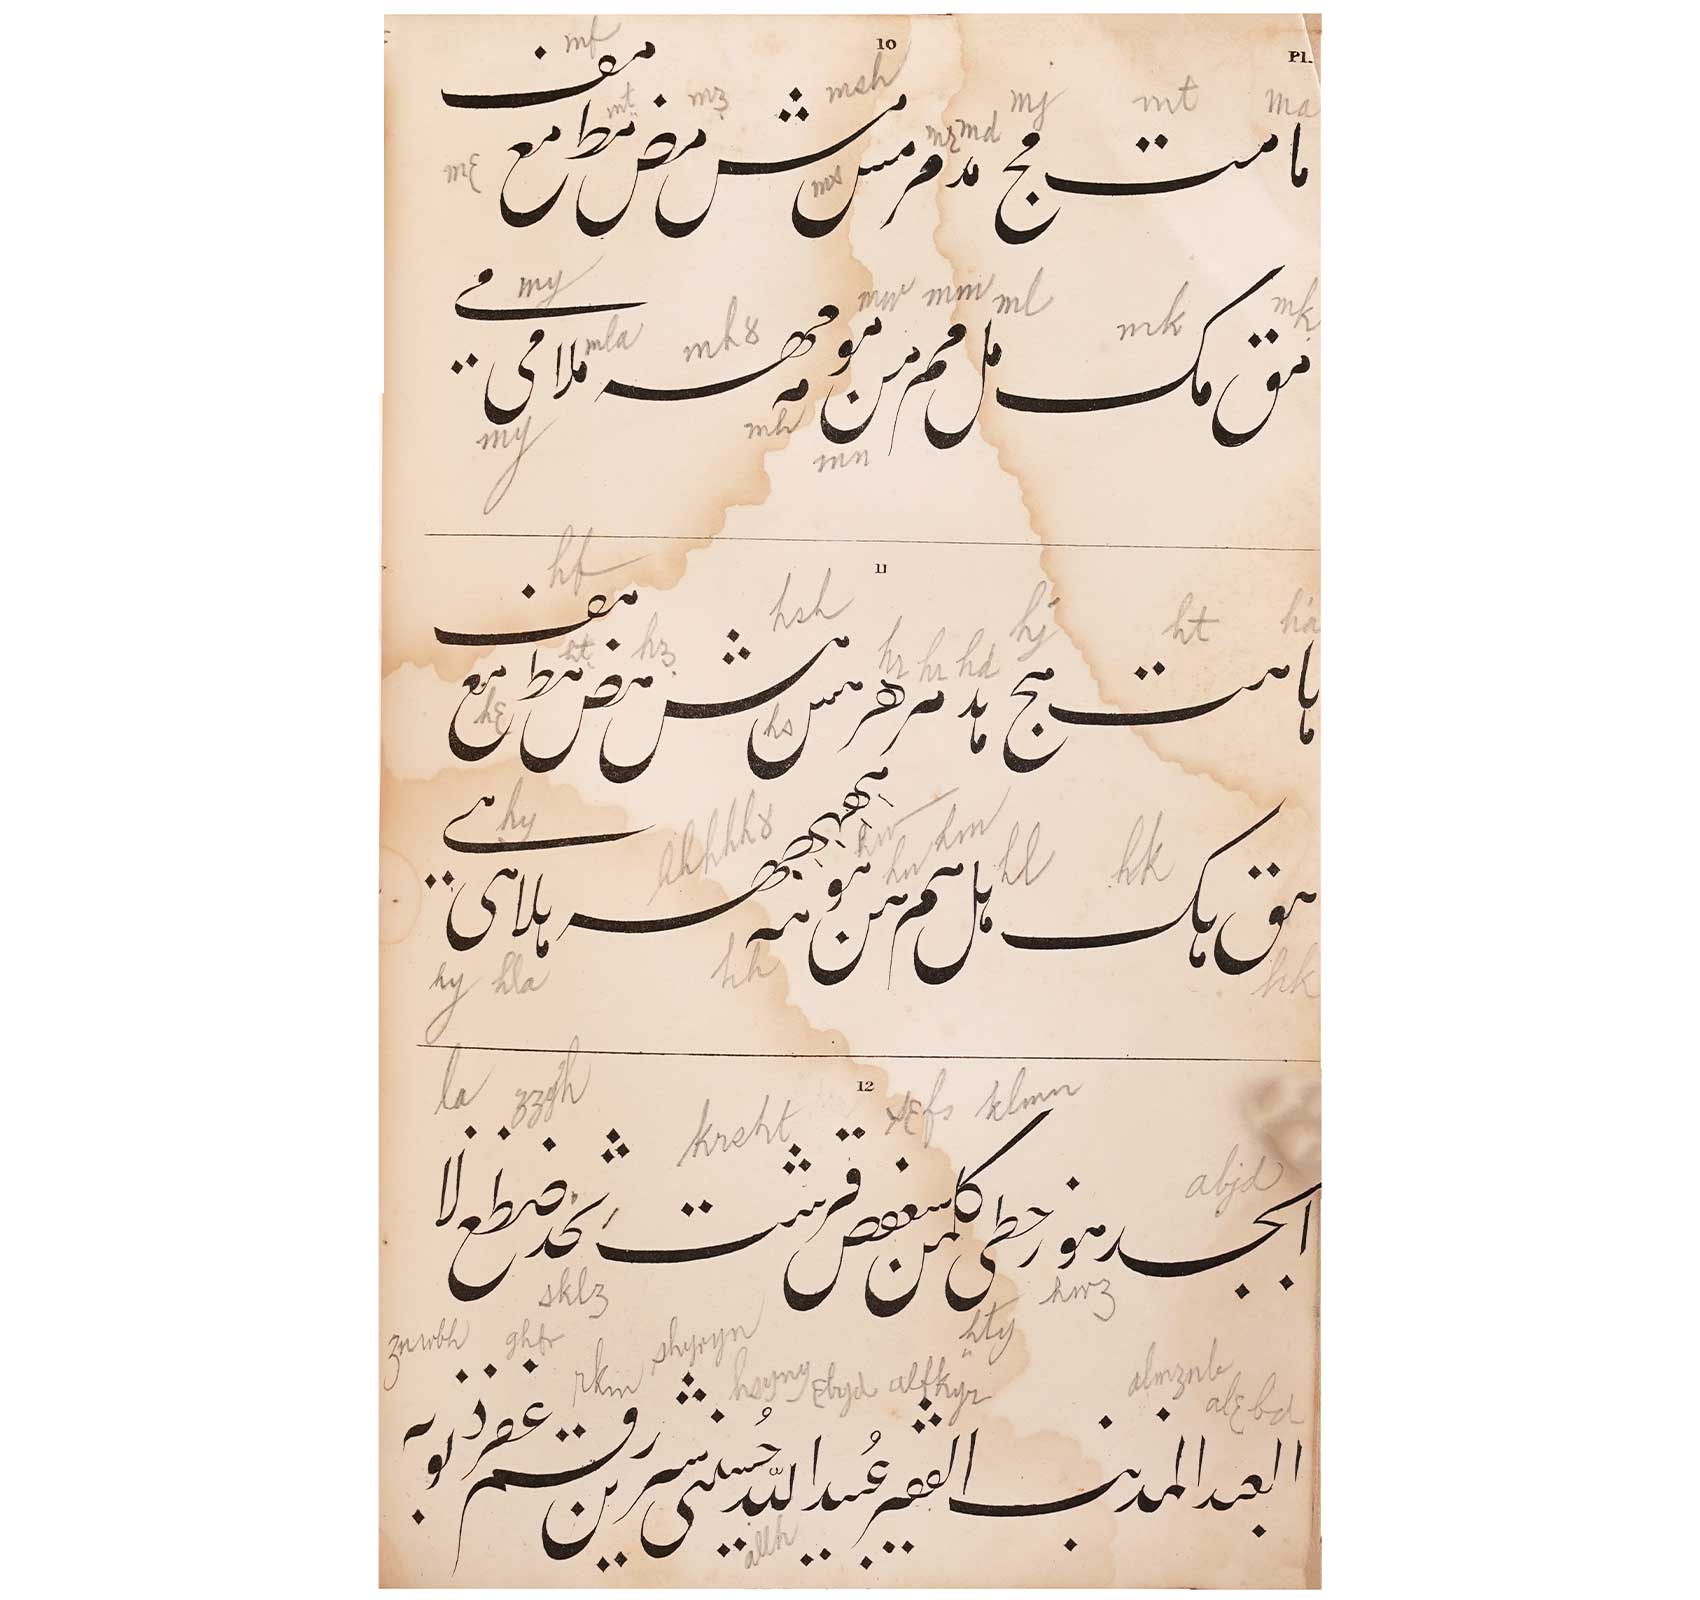 10 Pl.
mf
mt mz msh mj mt ma
mr md
ما مت مج مد مر مس مش مض مط مع مف
mع ms
my mw mm ml mk mk
mla mh8
مق مک مل مم من مو مه مهه ملا می مے
my mh mn
11
hf
ht hz hsh hr hr hd hj ht ha
ها هت هج هد هر هر هس هش هض هط هع هف
hع hs
hy hhhh8 hw hm hl hk
هق هک هل هم هن هو هه ههههه هلا هی هے
hy hla hh hk
12
la krsht sعfs klmn
abjd
ابجد هوز حطی کلمن سعفص قرشت ثخذ ضظغ لا
hwz
hty
znwbh ghfr rkm shyryn hsyny عbyd alfkyr almznb alعbd
العبد المذنب الفقیر عُبید اللّه حُسینی شیرین رقم غفر ذنوبه
allh